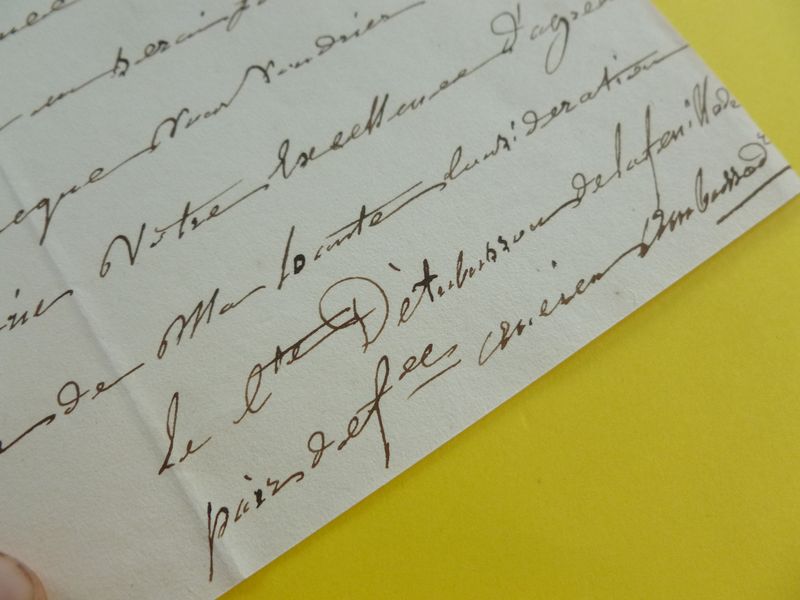 en
que vous voudriez
Votre Excellence d'agréer
de Ma haute Considération
le Cte D'Aubusson de lafeuillade
pair de fce ancien Ambassadr